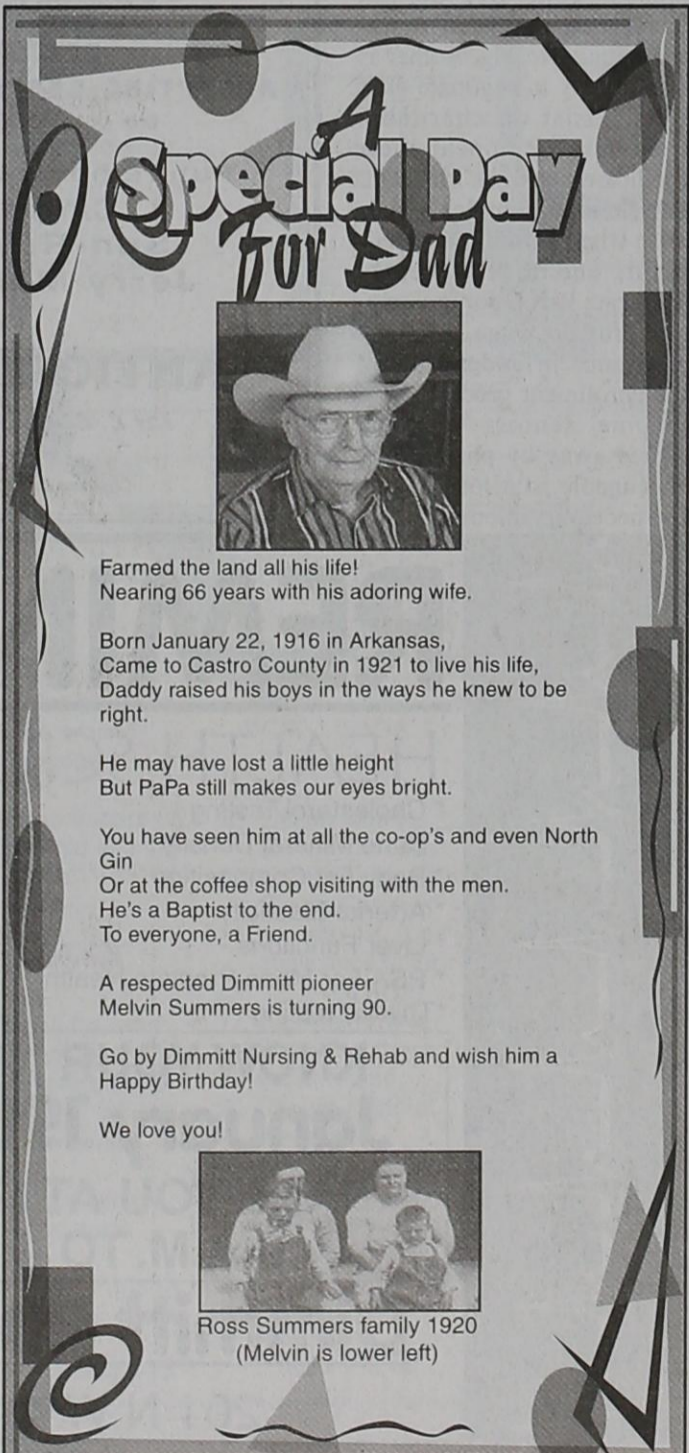 A
Special Day
For Dad
Farmed the land all his life!
Nearing 66 years with his adoring wife.
Born January 22, 1916 in Arkansas,
Came to Castro County in 1921 to live his life,
Daddy raised his boys in the ways he knew to be
right.
He may have lost a little height
But PaPa still makes our eyes bright.
You have seen him at all the co-op's and even North
Gin
Or at the coffee shop visiting with the men.
He's a Baptist to the end.
To everyone, a Friend.
A respected Dimmitt pioneer
Melvin Summers is turning 90.
Go by Dimmitt Nursing & Rehab and wish him a
Happy Birthday!
We love you!
Ross Summers family 1920
(Melvin is lower left)